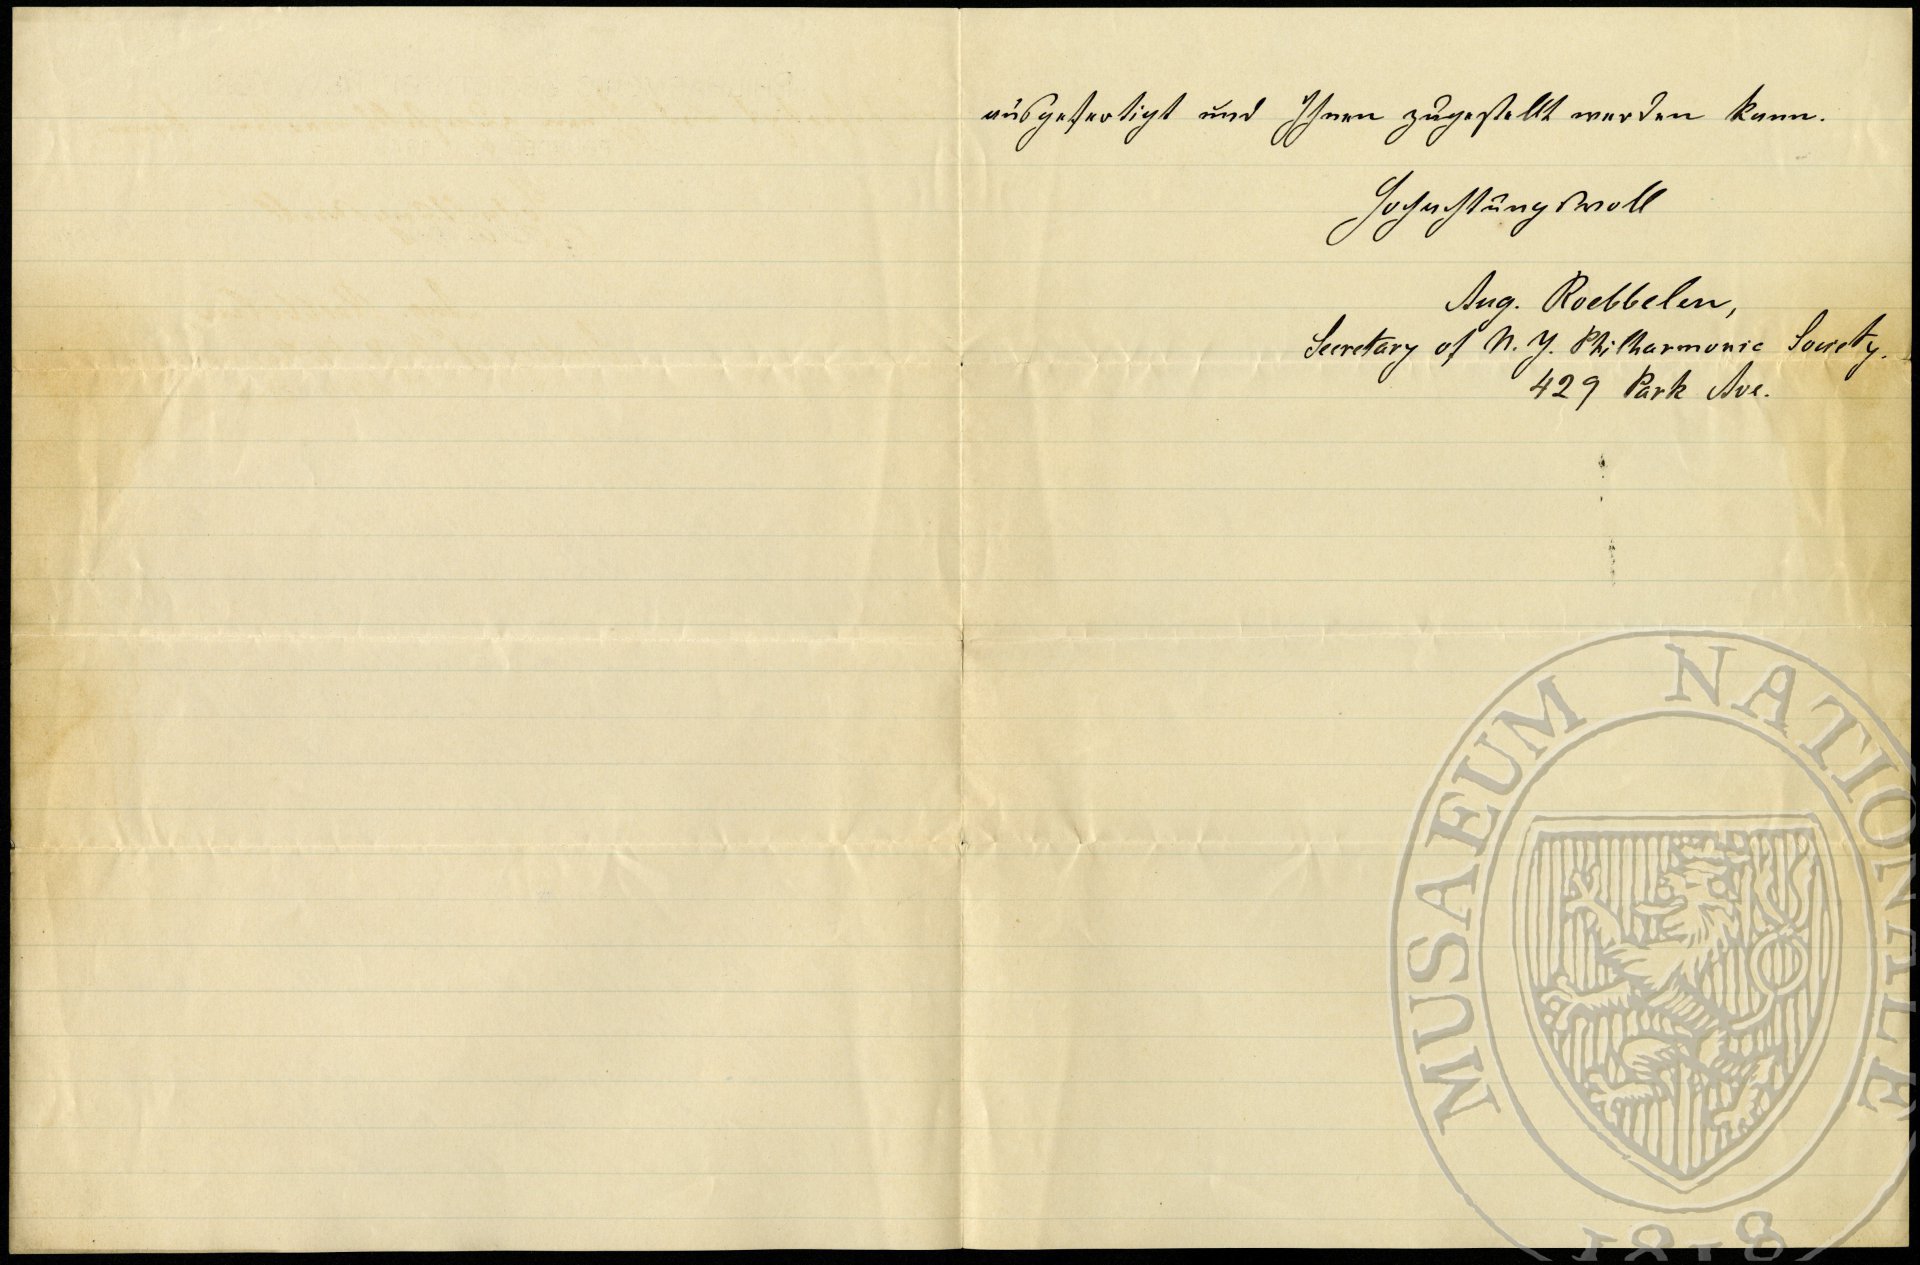 ausgefertigt und Ihnen zugestellt werden kann.
Hochachtungsvoll
Aug. Roebbelen,
Secretary of N. Y. Philharmonic Society.
429 Park Ave.
MUSAEUM NATIONALE
1818